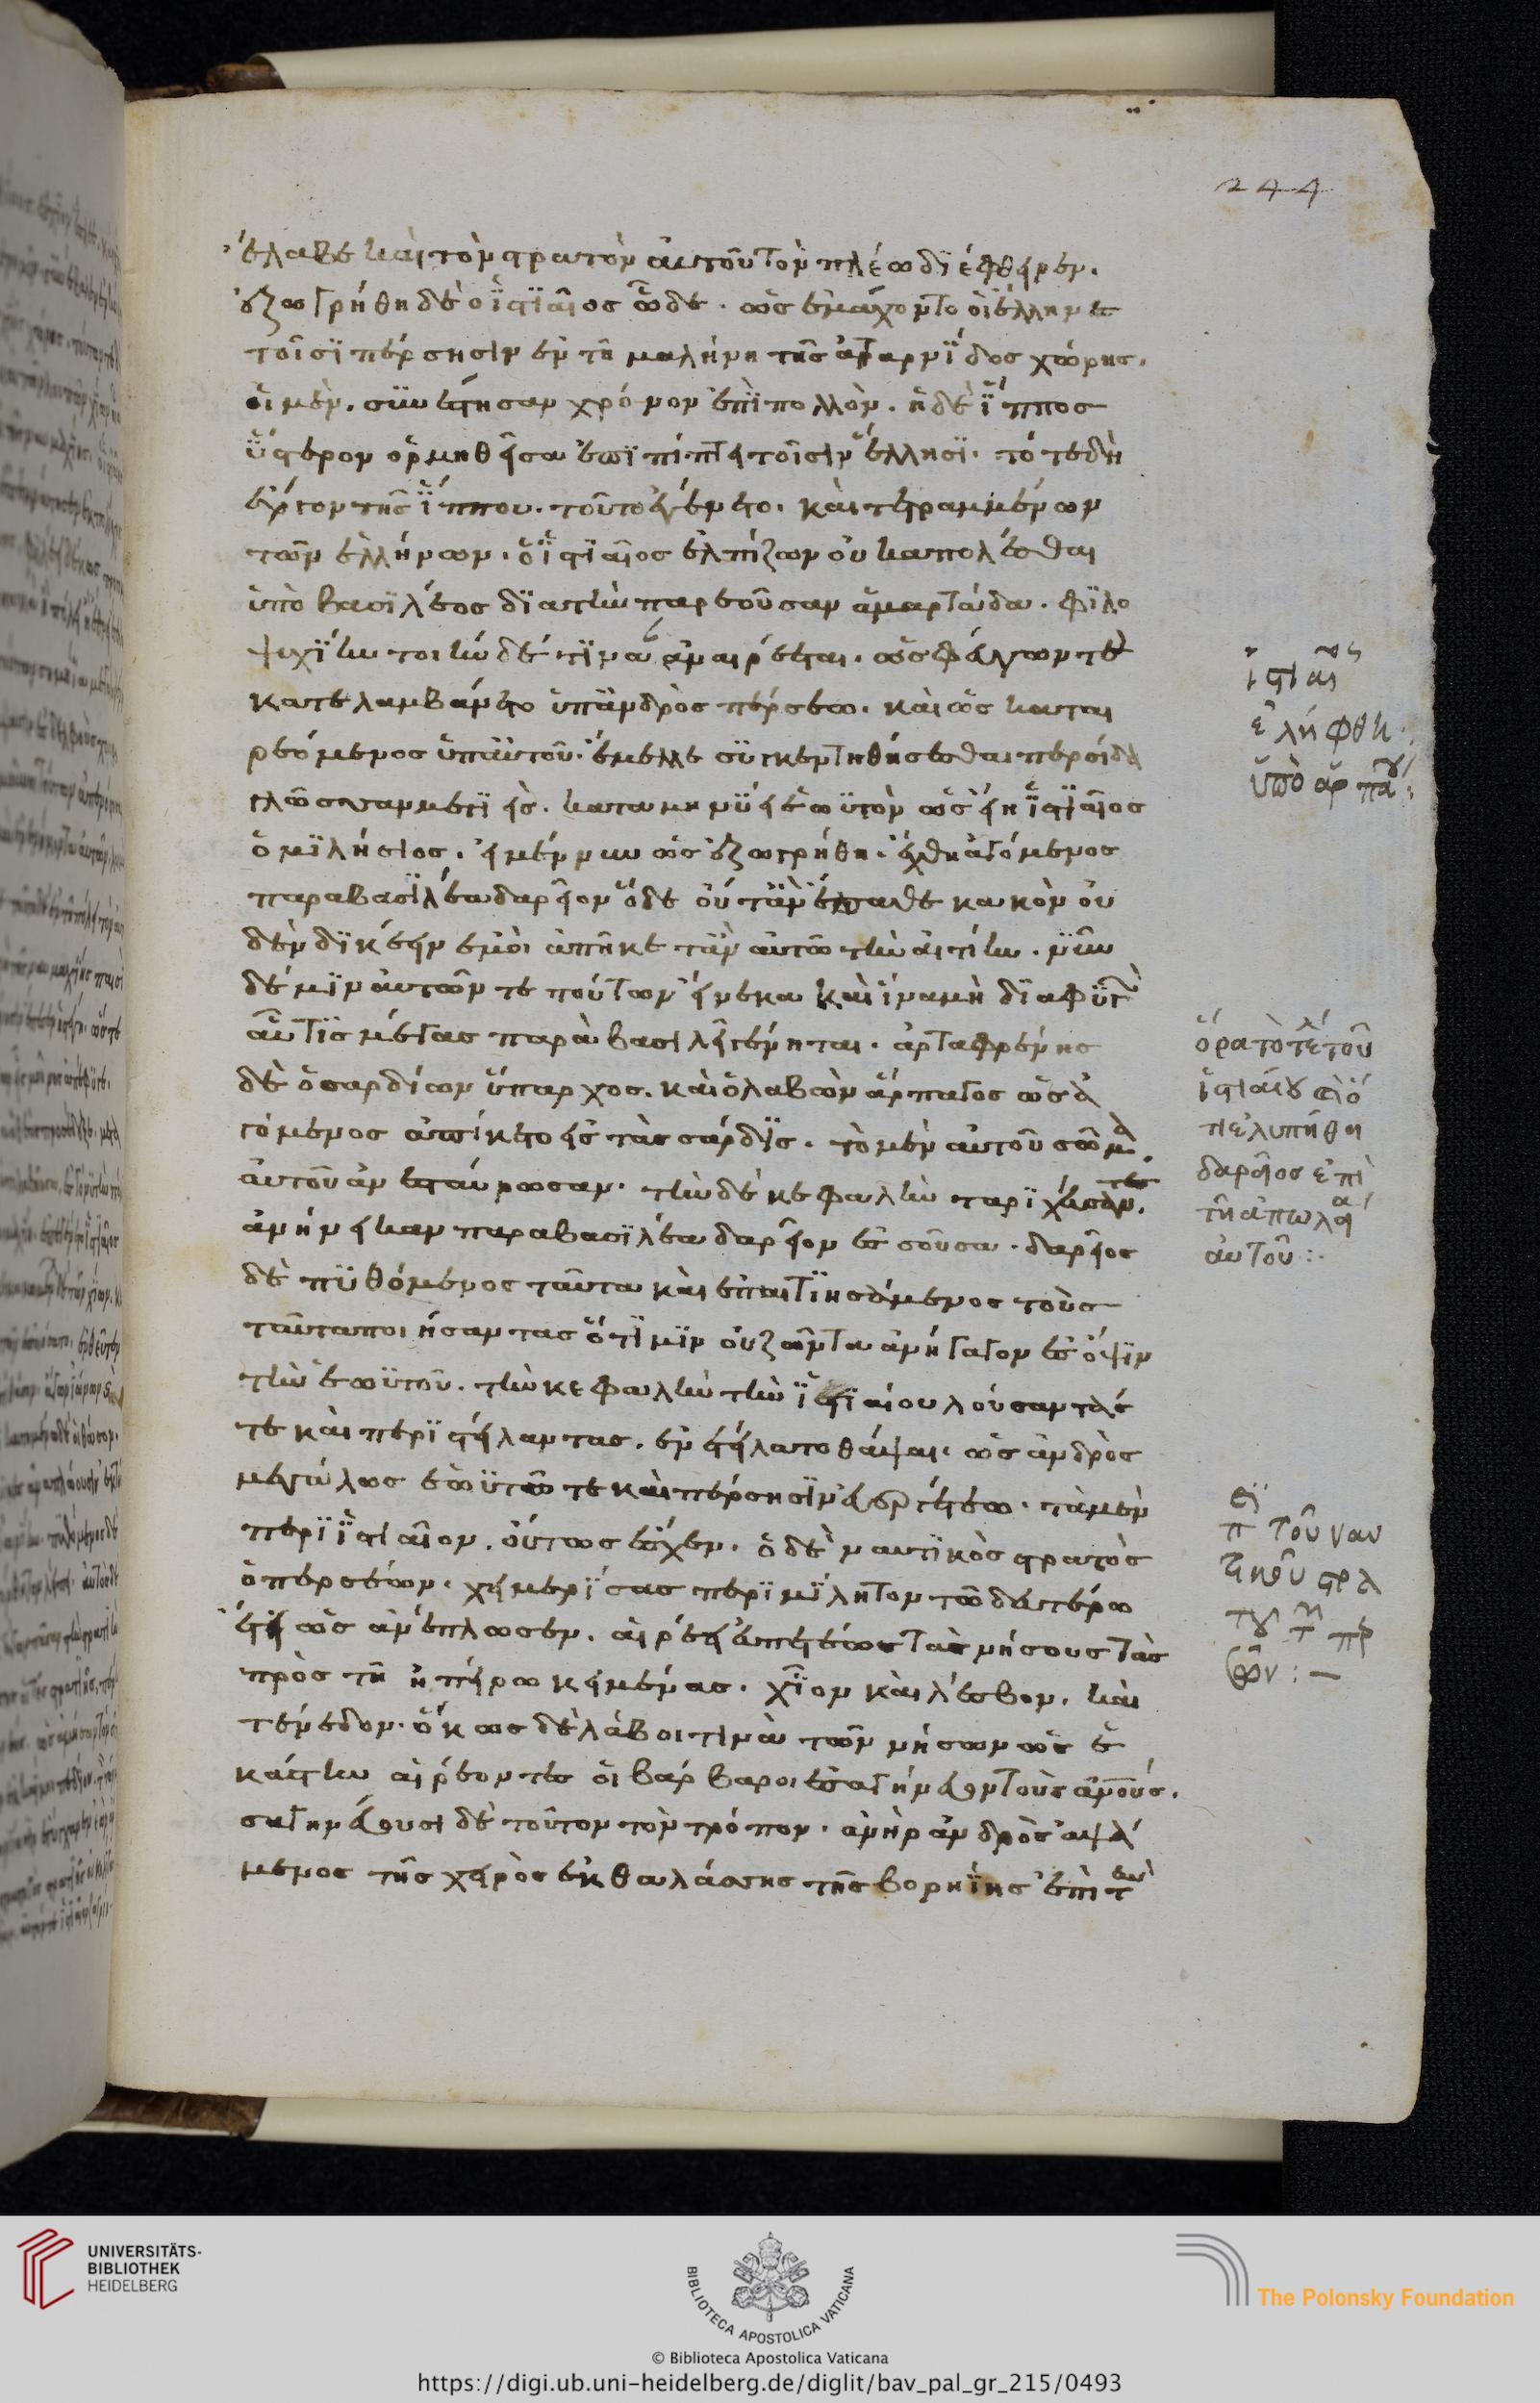 244
ἔλαβε καὶ τὸν στρατὸν αὐτοῦ τὸν πλέω διέφθειρεν.
ἐζωγρήθη δὲ ὁ ἱστιαῖος ὧδε. ὡς ἐμάχοντο οἱ ἕλληνες
τοῖσι πέρσησιν ἐν τῆ μαλήνη τῆς ἀταρνίδος χώρης.
οἱ μὲν. συνέστησαν χρόνον ἐπὶ πολλόν. ἡ δὲ ἵππος
ὕστερον ὁρμηθεῖσα ἐπιπίπτει τοῖσιν ἕλλησι. τό τε δὴ
ἔργον τῆς ἵππου. τοῦτο ἐγένετο. καὶ τετραμμένων
τῶν ἑλλήνων. ὁ ἱστιαῖος ἐλπίζων οὐκ ἀπολέεσθαι
ὑπὸ βασιλέος διὰ τὴν παρεοῦσαν ἁμαρτάδα. φιλο
ψυχίην τοιήνδε τινὰ ἀναιρέεται. ὡς φεύγων τε
κατελαμβάνετο ὑπ' ἀνδρὸς πέρσεω. καὶ ὡς καται
ρεόμενος ὑπ' αὐτοῦ. ἔμελλε συγκεντηθήσεσθαι περσίδα
γλῶσσαν μετιεὶς. καταμηνύει ἑωυτὸν ὡς εἴη ἱστιαῖος
ὁ μιλήσιος. εἰ μέν νυν ὡς ἐζωγρήθη. ἄχθη ἀγόμενος
παρὰ βασιλέα δαρεῖον ὅδε οὔτ' ἂν ἔπαθε κακὸν οὐ
δὲν δικέειν ἐμοὶ ἀπῆκέ τ' ἂν αὐτῶ τὴν αἰτίην. νῦν
δέ μιν αὐτῶν τε τούτων εἵνεκα καὶ ἵνα μὴ διαφυγὼν
αὖτις μέγας παρὰ βασιλέϊ γένηται. ἀρταφρένης
δὲ ὁ σαρδίων ὕπαρχος. καὶ ὁ λαβὼν ἅρπαγος ὡς ἀ
γόμενος ἀπίκετο εἰς τὰς σάρδις. τὸ μὲν αὐτοῦ σῶμα.
αὐτοῦ ἀνεσταύρωσαν. τὴν δὲ κεφαλὴν ταριχεύσαντες.
ἀνήνεικαν παρὰ βασιλέα δαρεῖον ἐς σοῦσα. δαρεῖος
δὲ πυθόμενος ταῦτα καὶ ἐπαιτιησάμενος τοὺς
ταῦτα ποιήσαντας ὅτι μιν οὐ ζῶντα ἀνήγαγον ἐς ὄψιν
τὴν ἑωυτοῦ. τὴν κεφαλὴν τὴν ἱστιαίου λούσαντάς
τε καὶ περιστείλαντας. ἐνετείλατο θάψαι. ὡς ἀνδρὸς
μεγάλως ἑωυτῶ τε καὶ πέρσησιν εὐεργέτεω. τὰ μὲν
περὶ ἱστιαῖον. οὕτως ἔσχεν. ὁ δὲ ναυτικὸς στρατὸς
ὁ περσέων. χειμερίσας περὶ μίλητον τῶ δευτέρω
ἔτει ὡς ἀνέπλωσεν. αἱρέει εὐπετέως τὰς νήσους τὰς
πρὸς τῆ ἠπείρω κειμένας. χῖον καὶ λέσβον. καὶ
τένεδον. ὅκως δὲ λάβοι τινὰ τῶν νήσων ὡς ἑ
κάστην αἱρέοντες οἱ βάρβαροι ἐσαγήνευον τοὺς ἀνθρώπους.
σαγηνεύουσι δὲ τοῦτον τὸν τρόπον. ἀνὴρ ἀνδρὸς ἁψά
μενος τῆς χειρὸς ἐκ θαλάσσης τῆς βορηίης ἐπὶ τὴν
ἱστιαῖος
ἐλήφθη
ὑπὸ ἁρπάγου:
ὅρα τὸ τέλος τοῦ
ἱστιαίου καὶ ὅ
τι ἐλυπήθη
δαρεῖος ἐπὶ
τῆ ἀπωλείᾳ
αὐτοῦ:.
περὶ τοῦ ναυ
τικοῦ στρα
τοῦ τῶν περ
σῶν:—
UNIVERSITÄTS-
BIBLIOTHEK
HEIDELBERG
BIBLIOTECA APOSTOLICA VATICANA
The Polonsky Foundation
© Biblioteca Apostolica Vaticana
https://digi.ub.uni-heidelberg.de/diglit/bav_pal_gr_215/0493